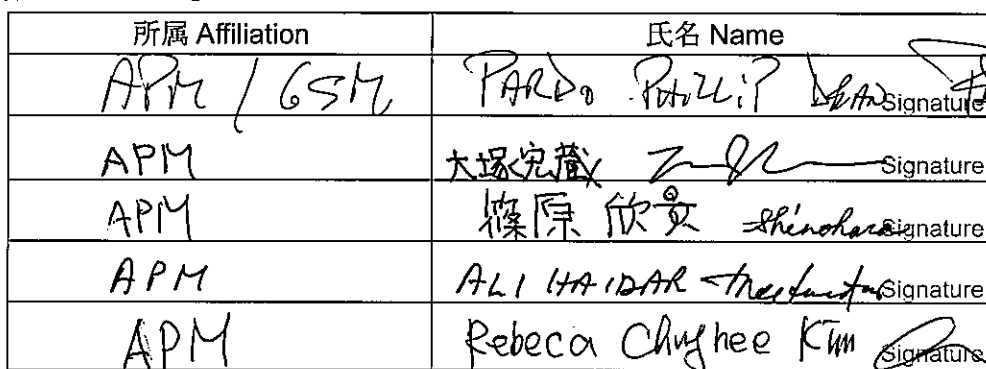 所属 Affiliation 氏名 Name
APM / GSM PARDO PHILLIP DEAN Signature
APM 大塚 Signature
APM 篠原 欣貴 Shinohara Signature
APM ALI HAIDAR Signature
APM Rebeca Chunghee Kim Signature